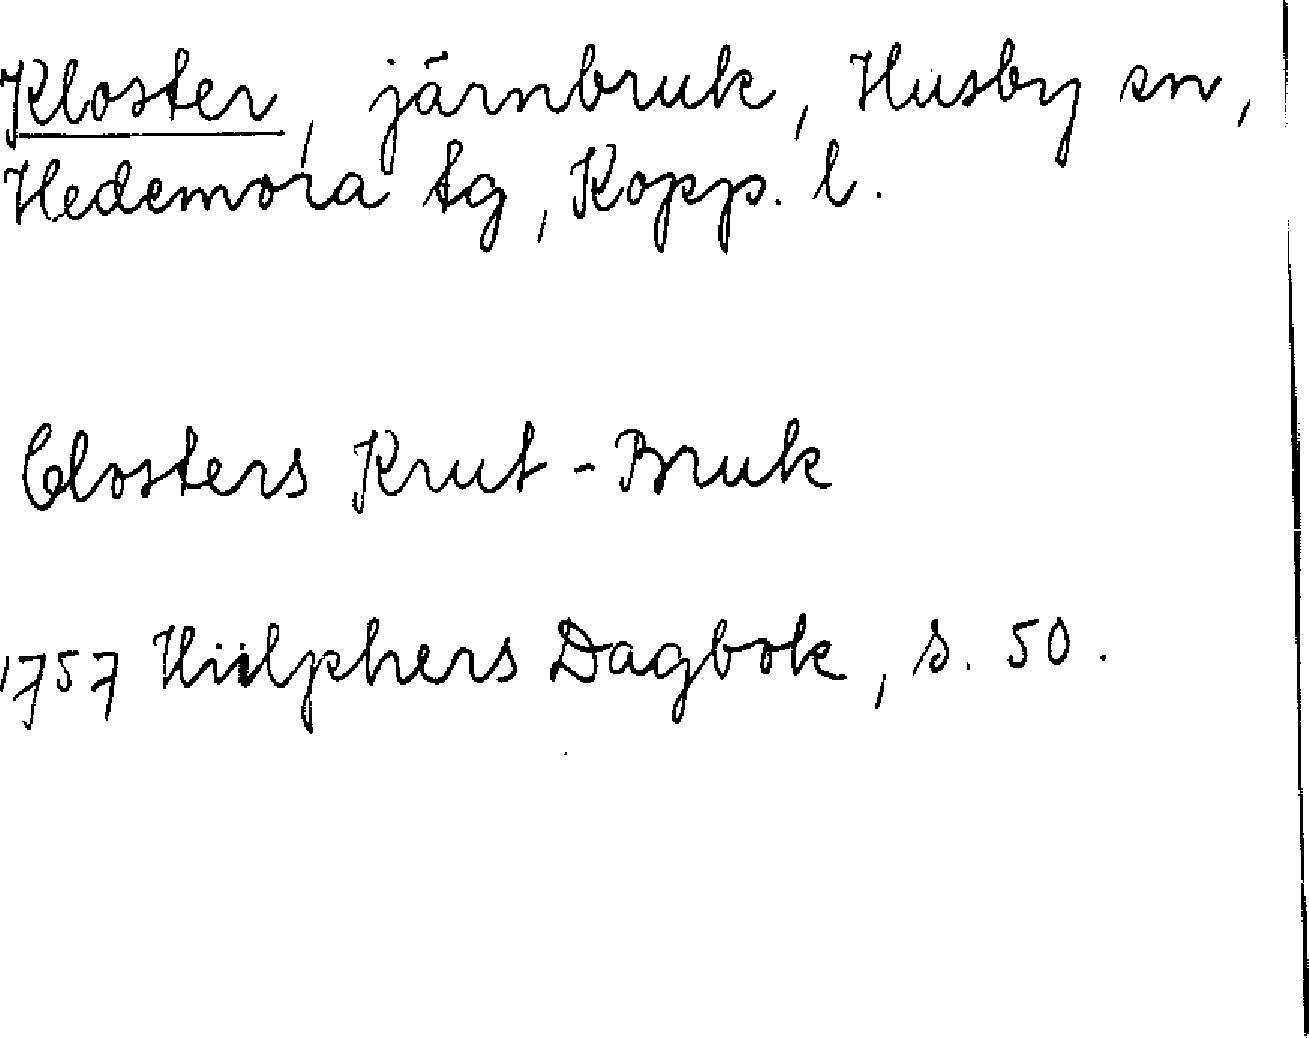 Kloster, järnbruk, Husby sn,
Hedemora tg, Kopp. l.
Closters Krut-Bruk
1757 Hülphers Dagbok, s. 50.